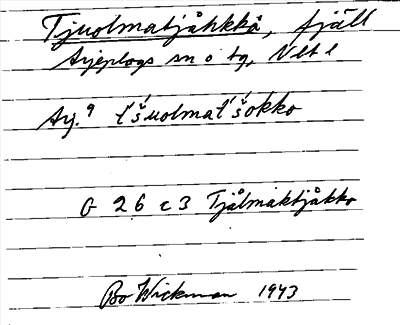 Tjuolmatjåhkkå, fjäll
Arjeplogs sn o tg, Nlt l
Arj. 9 t́šuolmat́šokko
G 26 c 3 Tjålmaktjåkko
Bo Wickman 1943